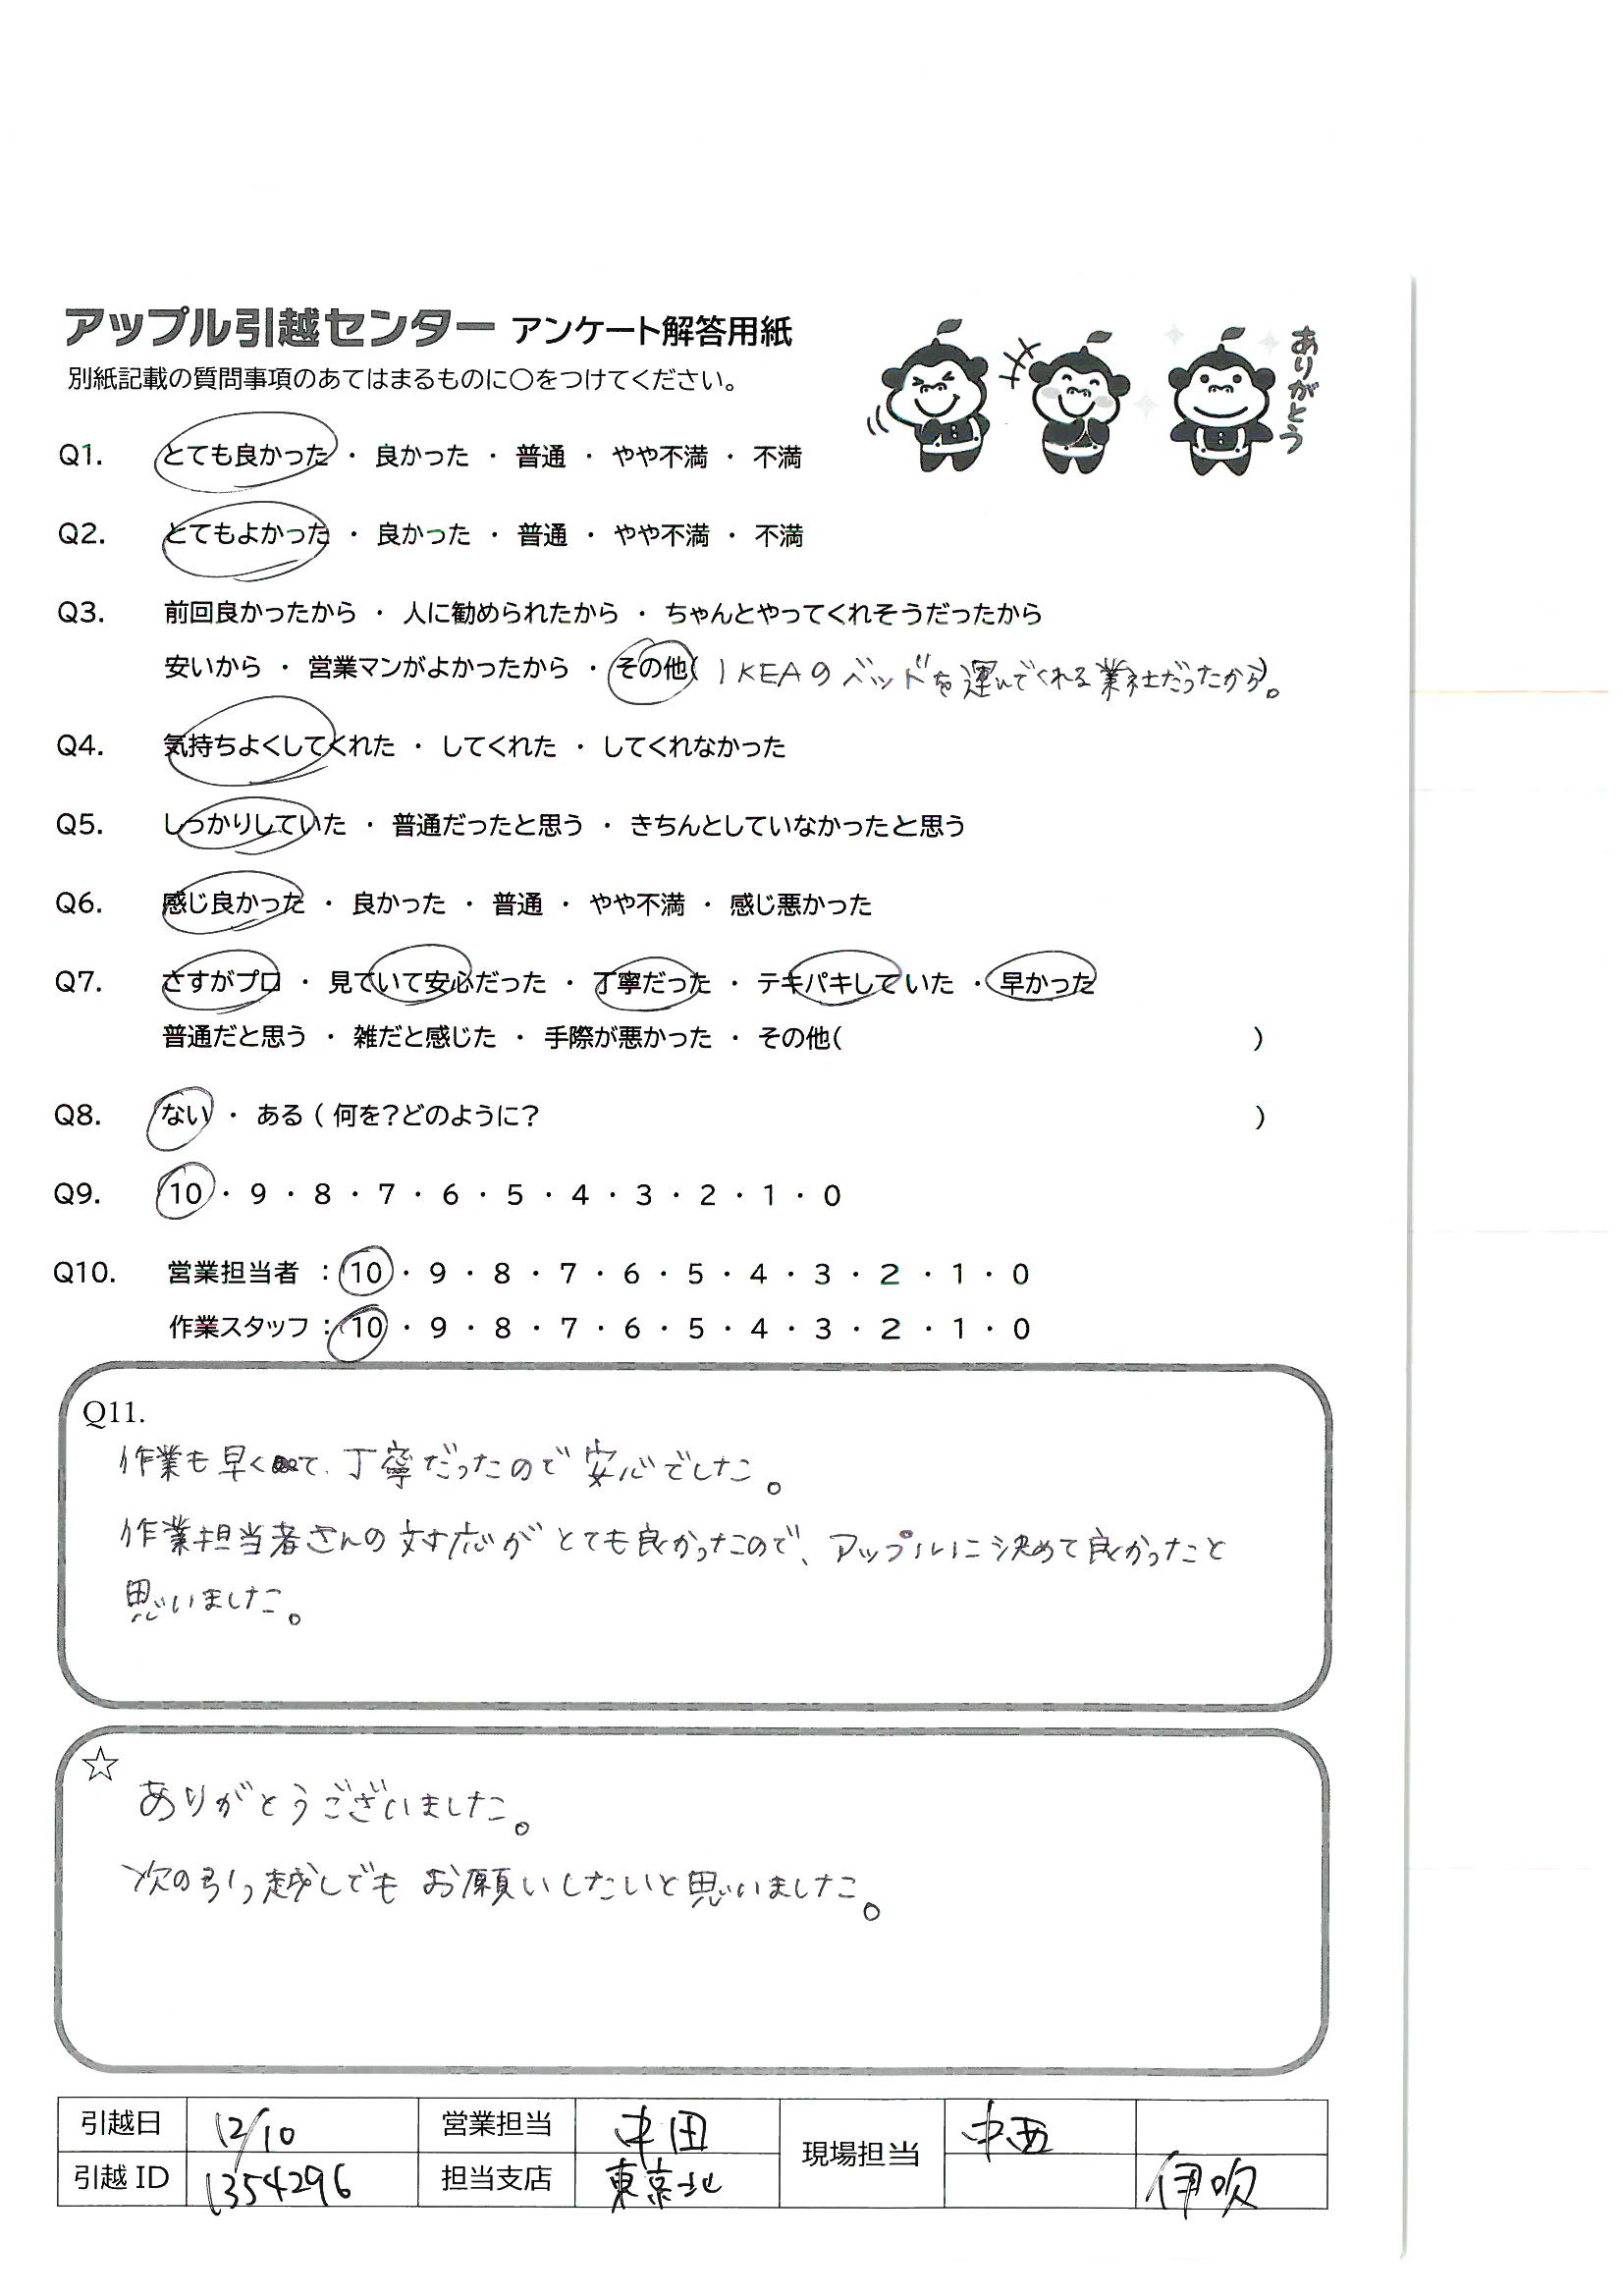 アップル引越センター アンケート解答用紙
別紙記載の質問事項のあてはまるものに○をつけてください。
ありがとう
Q1. とても良かった ・ 良かった ・ 普通 ・ やや不満 ・ 不満
Q2. とてもよかった ・ 良かった ・ 普通 ・ やや不満 ・ 不満
Q3. 前回良かったから ・ 人に勧められたから ・ ちゃんとやってくれそうだったから
安いから ・ 営業マンがよかったから ・ その他( IKEAのベッドを運んでくれる業社だったから)。
Q4. 気持ちよくしてくれた ・ してくれた ・ してくれなかった
Q5. しっかりしていた ・ 普通だったと思う ・ きちんとしていなかったと思う
Q6. 感じ良かった ・ 良かった ・ 普通 ・ やや不満 ・ 感じ悪かった
Q7. さすがプロ ・ 見ていて安心だった ・ 丁寧だった ・ テキパキしていた ・ 早かった
普通だと思う ・ 雑だと感じた ・ 手際が悪かった ・ その他( )
Q8. ない ・ ある ( 何を？どのように？ )
Q9. 10 ・ 9 ・ 8 ・ 7 ・ 6 ・ 5 ・ 4 ・ 3 ・ 2 ・ 1 ・ 0
Q10. 営業担当者 : 10 ・ 9 ・ 8 ・ 7 ・ 6 ・ 5 ・ 4 ・ 3 ・ 2 ・ 1 ・ 0
作業スタッフ : 10 ・ 9 ・ 8 ・ 7 ・ 6 ・ 5 ・ 4 ・ 3 ・ 2 ・ 1 ・ 0
Q11.
作業も早くて、丁寧だったので安心でした。
作業担当者さんの対応がとても良かったので、アップルに決めて良かったと
思いました。
☆
ありがとうございました。
次の引っ越しでもお願いしたいと思いました。
引越日 12/10 営業担当 中田 現場担当 中西
引越ID 1354296 担当支店 東京北 伊吹